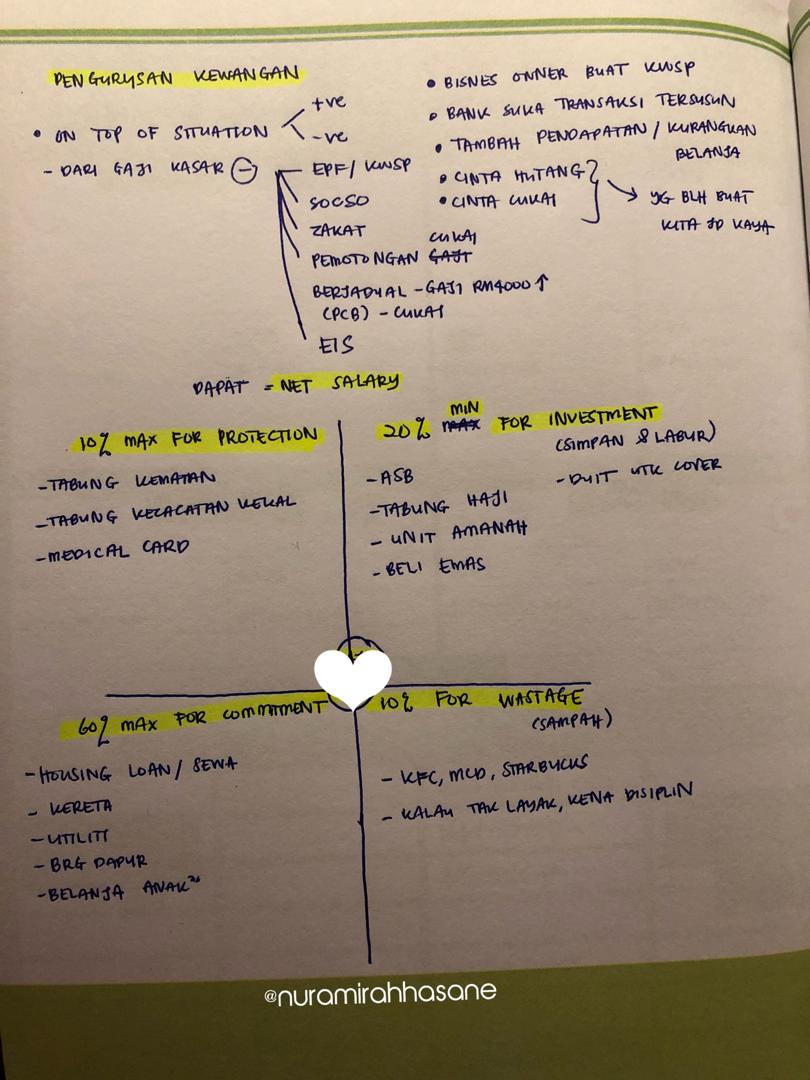 PENGURUSAN KEWANGAN
• ON TOP OF SITUATION
+ve
-ve
- DARI GAJI KASAR ⊖
EPF / KWSP
SOCSO
ZAKAT
CUKAI
PEMOTONGAN GAJI
BERJADUAL - GAJI RM4000 ↑
(PCB) - CUKAI
EIS
• BISNES OWNER BUAT KWSP
• BANK SUKA TRANSAKSI TERSUSUN
• TAMBAH PENDAPATAN / KURANGKAN
BELANJA
• CINTA HUTANG
• CINTA CUKAI
YG BLH BUAT
KITA JD KAYA
DAPAT = NET SALARY
10% MAX FOR PROTECTION
- TABUNG KEMATIAN
- TABUNG KECACATAN KEKAL
- MEDICAL CARD
MIN
20% MAX FOR INVESTMENT
(SIMPAN & LABUR)
- ASB
- TABUNG HAJI
- UNIT AMANAH
- BELI EMAS
- DUIT UTK COVER
60% MAX FOR COMMITMENT
- HOUSING LOAN / SEWA
- KERETA
- UTILITI
- BRG DAPUR
- BELANJA ANAK²
10% FOR WASTAGE
(SAMPAH)
- KFC, MCD, STARBUCKS
- KALAU TAK LAYAK, KENA DISIPLIN
@nuramirahhasane